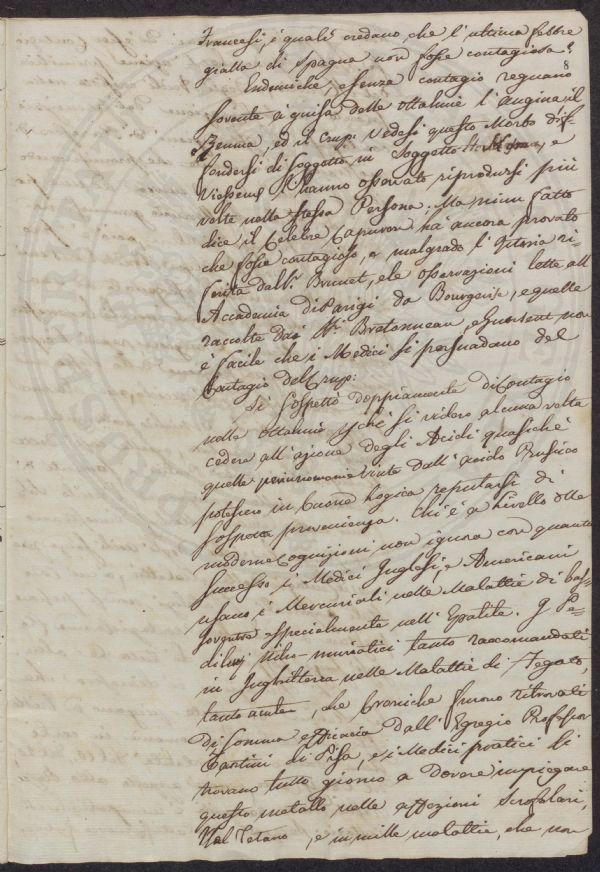 Francesi, i quali credano, che l'ultima febbre
gialla di Spagna non fosse contagiosa?
8
Endemiche, e senza contagio regnano
sovente a guisa delle ottalmie l'angina, il
ed il Crup. Vedesi questo Morbo dif
fondersi di soggetto in soggetto e
hanno osservato riprodursi più
volte nella stessa Persona. Ma niun fatto
dice il Celebre Capuron ha ancora provato
che fosse contagioso, e malgrado l'Istoria ri
ferita dall Sr. Brunet, e le osservazioni lette all
Accademia di Parigi da e quelle
raccolte dai Sri. Bretonneau, e Guersent non
è facile che i Medici si persuadano del
Contagio del Crup:
Si sospettò doppiamente di Contagio
nelle ottalmie che si videro alcuna volta
cedere all'azione degli Acidi quasiché
quelle dall'acido Prussico
potessero in buona logica reputarsi di
sospetta provenienza. Chi è a livello delle
moderne Cognizioni non ignora con quanto
successo i Medici Inglesi, e Americani
usano i Mercuriali nelle Malattie di bas=
soventre specialmente nell'Epatite. I Pe=
diluvj Nitro-muriatici tanto raccomandati
in Inghilterra nelle Malattie di Fegato,
tanto acute, che Croniche furono ritrovati
di somma efficacia dall'Egregio Professor
di Pisa, e i Medici pratici si
trovano tutto giorno a dovere impiegare
questo metallo nelle affezioni Scrofolari,
Nel Tetano, e in mille malattie, che non